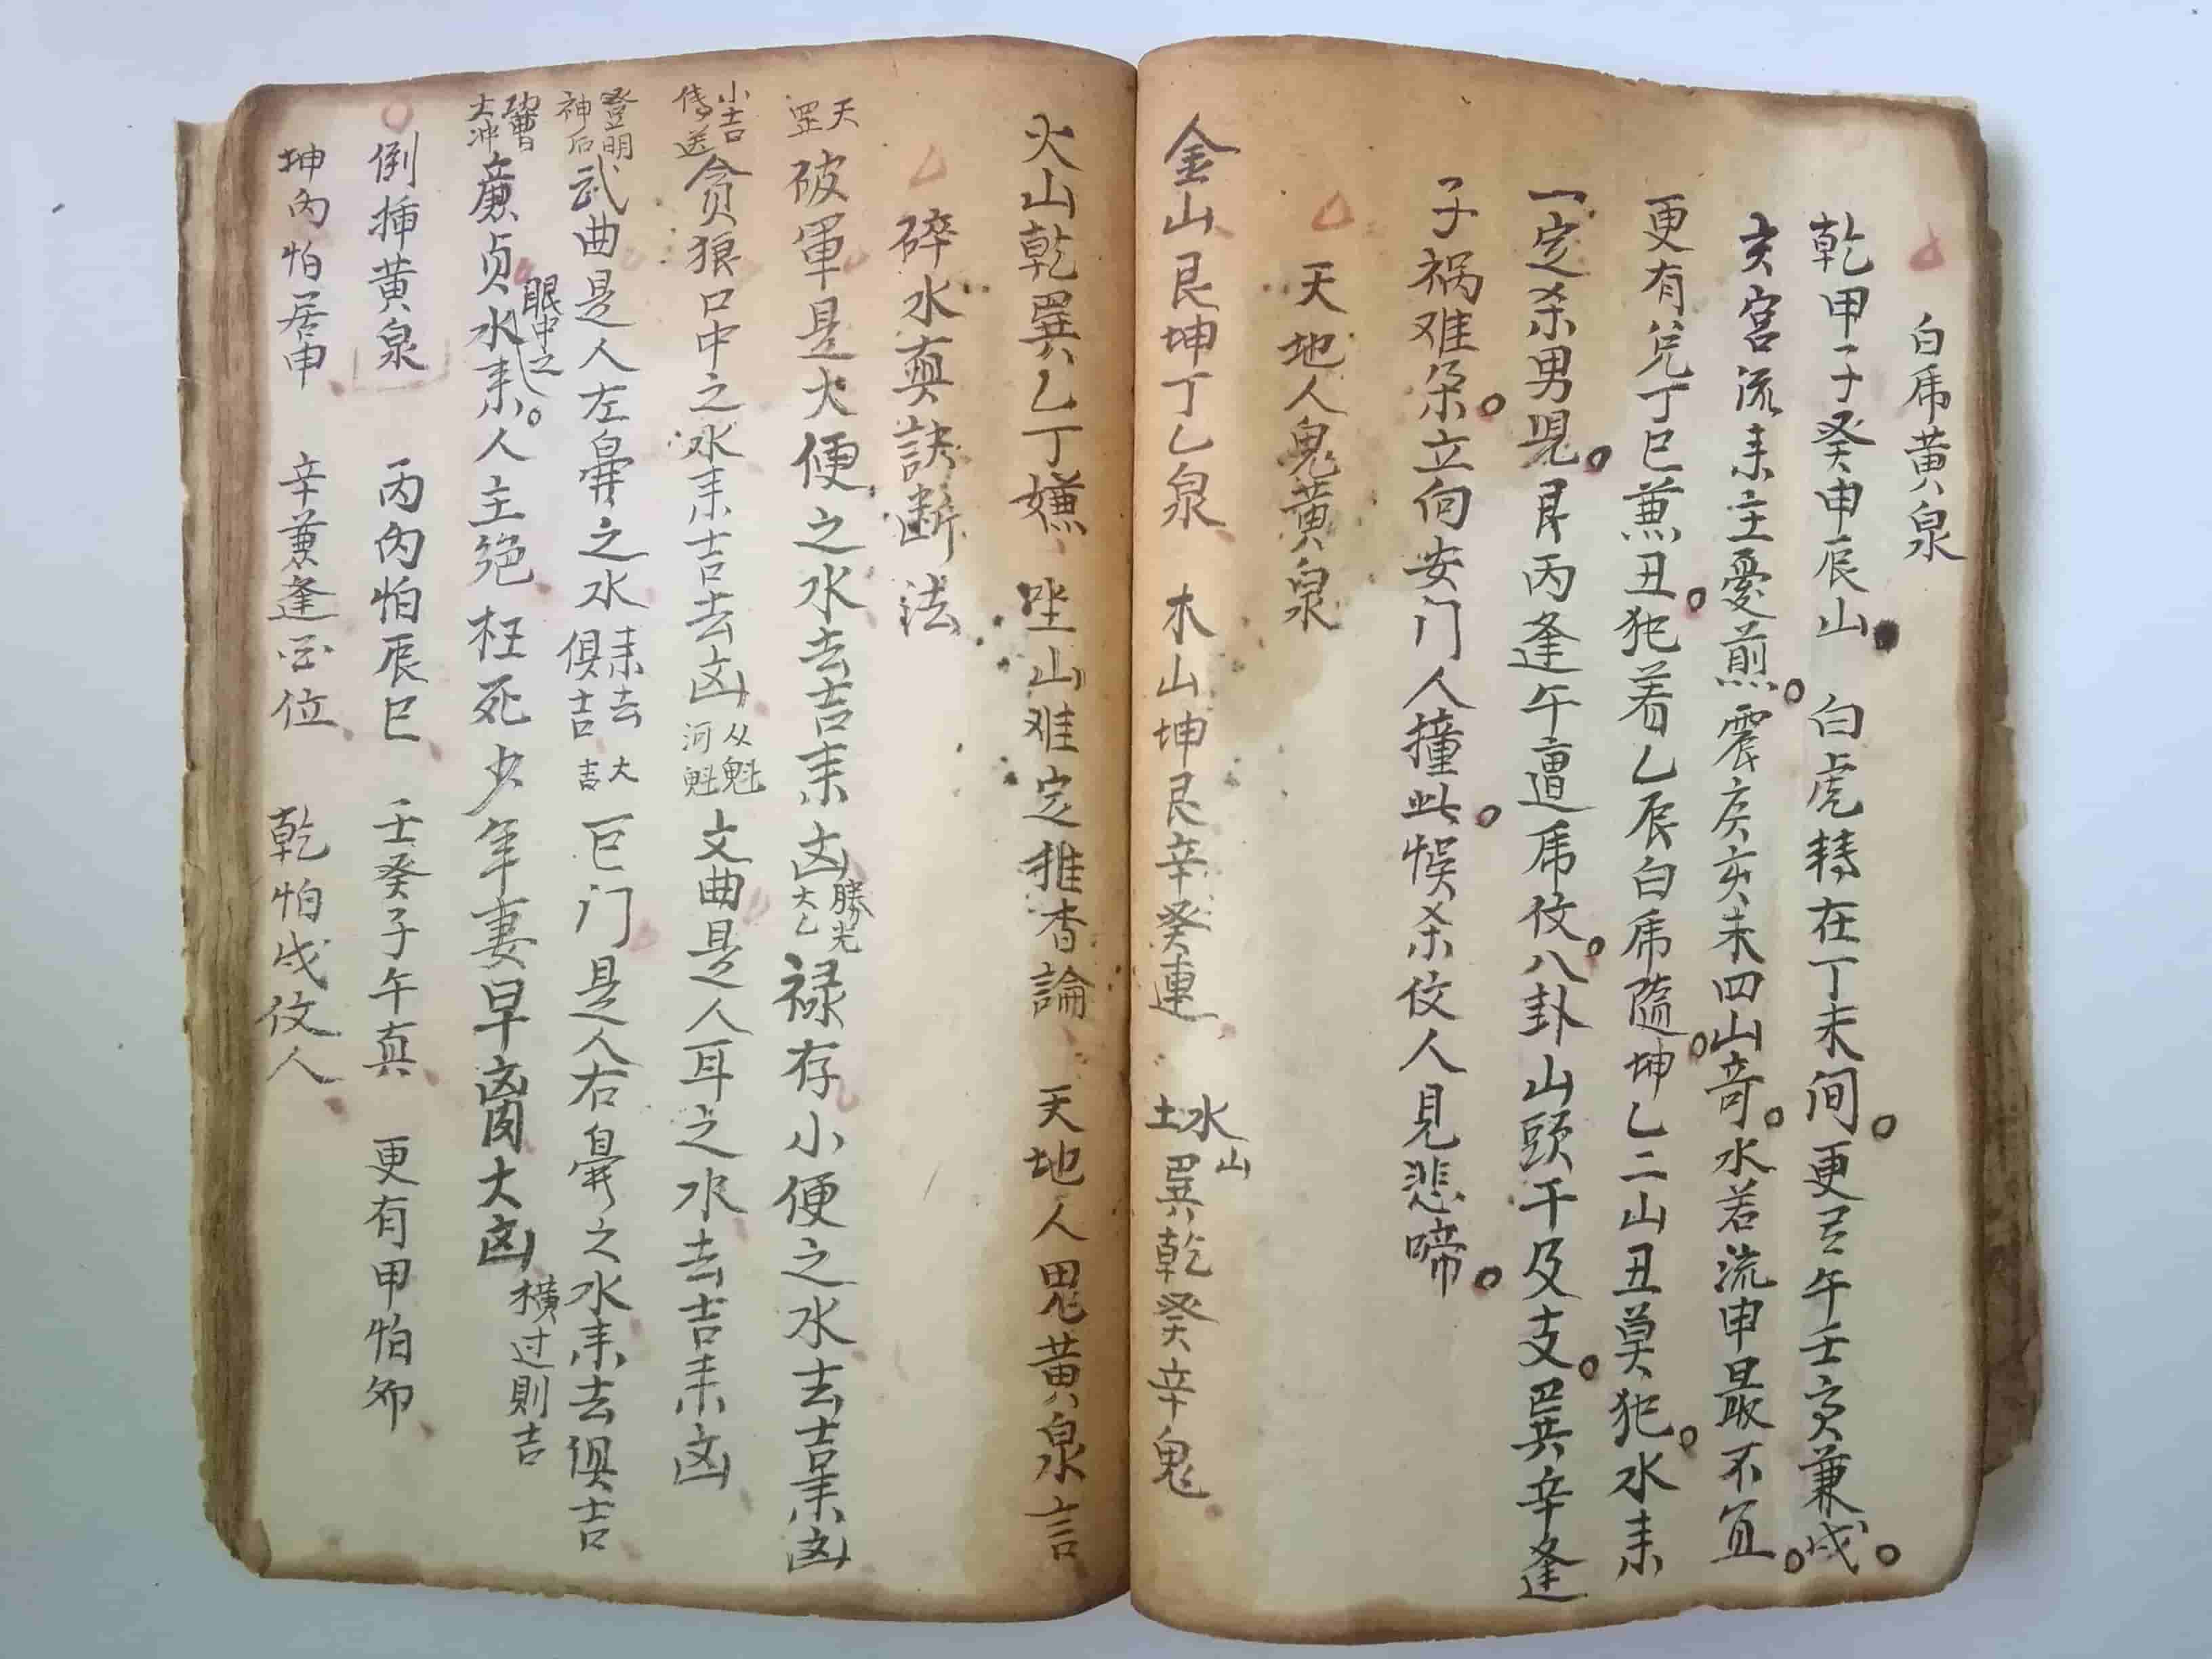 白虎黄泉
乾甲子癸申辰山 白虎轉在丁未间 更寻午壬寅兼戌
亥宫流来主憂煎 震庚亥未四山奇 水若流申最不宜
更有兑丁巳兼丑 犯着乙辰白虎隨 坤乙二山丑莫犯 水来
一定杀男児 艮丙逢午遭虎伤 八卦山頭干及支 巽辛逢
子祸难躲 立向安门人撞此 悮杀伤人見悲啼
天地人鬼黄泉
金山艮坤丁乙泉 木山坤艮辛癸連 水土山巽乾癸辛鬼
火山乾巽乙丁嫌 坐山难定推查論 天地人鬼黄泉言
碎水真訣断法
天罡 破軍是大便之水去吉来凶 勝光 太乙 禄存小便之水去吉来凶
小吉 傳送 贪狼口中之水来吉去凶 从魁 河魁 文曲是人耳之水去吉来凶
登明 神后 武曲是人左鼻之水来去俱吉 大吉 巨门是人右鼻之水来去俱吉
功曹 大冲 廉贞眼中之水来人主绝 枉死少年妻早 大凶 横过則吉
倒插黄泉 丙内怕辰巳 壬癸子午真 更有甲怕卯
坤内怕居申 辛兼逢酉位 乾怕戌伤人